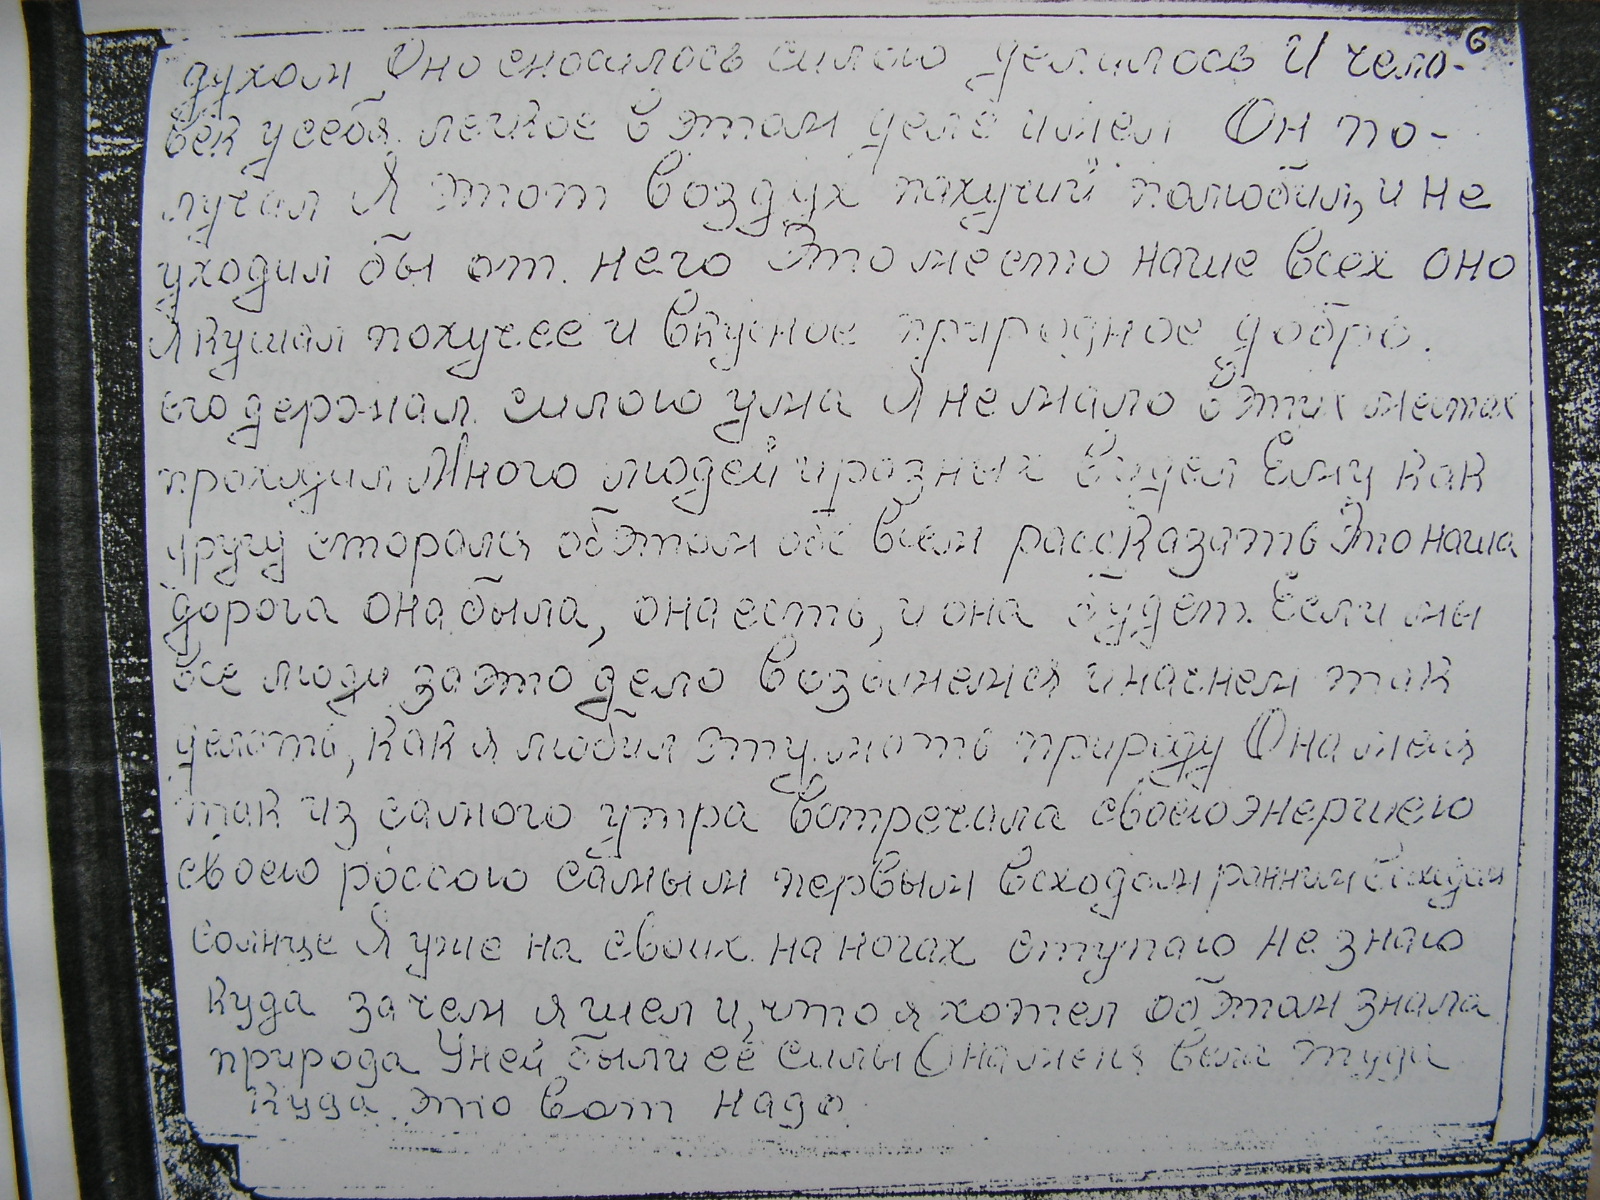 6
духом Оно сносилось силою делилось И чело-
век у себя легкое в этом деле имел Он по-
лучал Я этот воздух пахучий полюбил, и не
уходил бы от него Это место наше всех оно
Я кушал похучее и вкусное природное добро.
его держал силою ума Я не мало в этих местах
проходил Много людей и разных видел Ему как
другу сторался об этом обо всем рассказать Это наша
дорога она была, она есть, и она будет. Если мы
все люди за это дело возьмемся и начнем так
делоть, как я любил эту мать природу Она меня
так из самого утра встречала своею энергиею
своею россою самым первым всходом ранним
солнце Я уже на своих на ногах ступаю не знаю
куда зачем я шел и, что я хотел об этом знала
природа У ней были её силы Она меня вела туда
куда это вот надо.